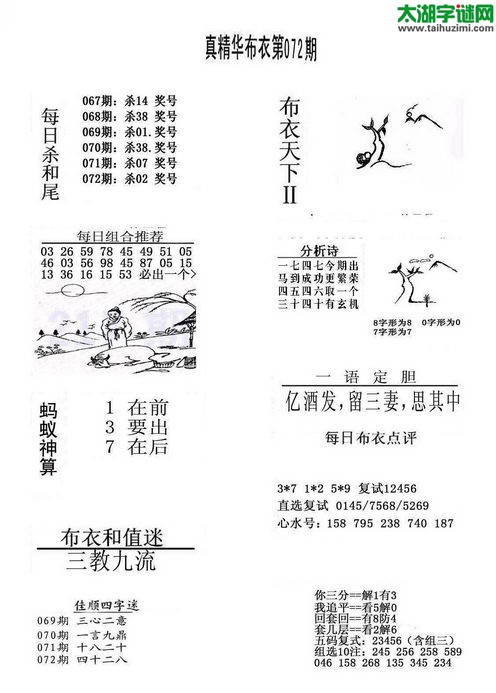 太湖字谜网
www.taihuzimi.com
真精华布衣第072期
每日杀和尾
067期: 杀14 奖号
068期: 杀38 奖号
069期: 杀01. 奖号
070期: 杀38. 奖号
071期: 杀07 奖号
072期: 杀02 奖号
布衣天下II
每日组合推荐
03 26 59 78 45 49 51 05
46 03 56 98 45 87 05 15
13 36 16 15 53 必出一个>
分析诗
一七四七今期出
马到成功更繁荣
四五四六取一个
三十四十有玄机
8字形为8 0字形为0
7字形为7
蚂蚁神算
1 在前
3 要出
7 在后
一语定胆
亿酒发,留三妻,思其中
每日布衣点评
3*7 1*2 5*9 复试12456
直选复试 0145/7568/5269
心水号: 158 795 238 740 187
布衣和值迷
三教九流
佳顺四字迷
069期 三心二意
070期 一言九鼎
071期 十八二十
072期 四十二八
你三分==解1有3
我追平==看5解0
回套回==有8防4
套几层==看2解6
五码复式: 23456 (含组三)
组选10注: 245 256 258 589
046 158 268 135 345 234